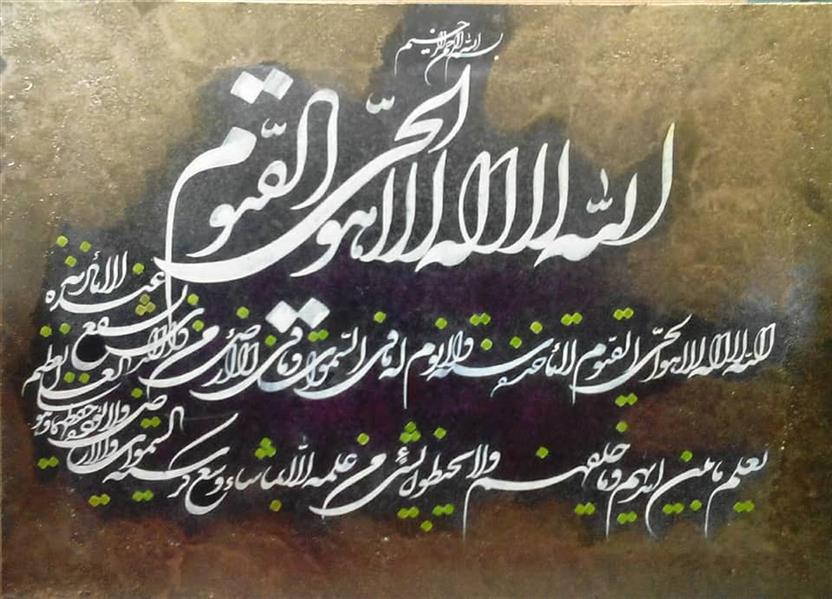 بسم الله الرحمن الرحیم
الله لا اله الا هو الحی القیوم
الله لا اله الا هو الحی القیوم لا تأخذه سنة ولا نوم له ما فی السموات وما فی الارض من ذا الذی یشفع عنده الا باذنه
یعلم ما بین ایدیهم وما خلفهم ولا یحیطون بشئ من علمه الا بما شاء وسع کرسیه السموات والارض ولا یؤده حفظهما وهو العلی العظیم